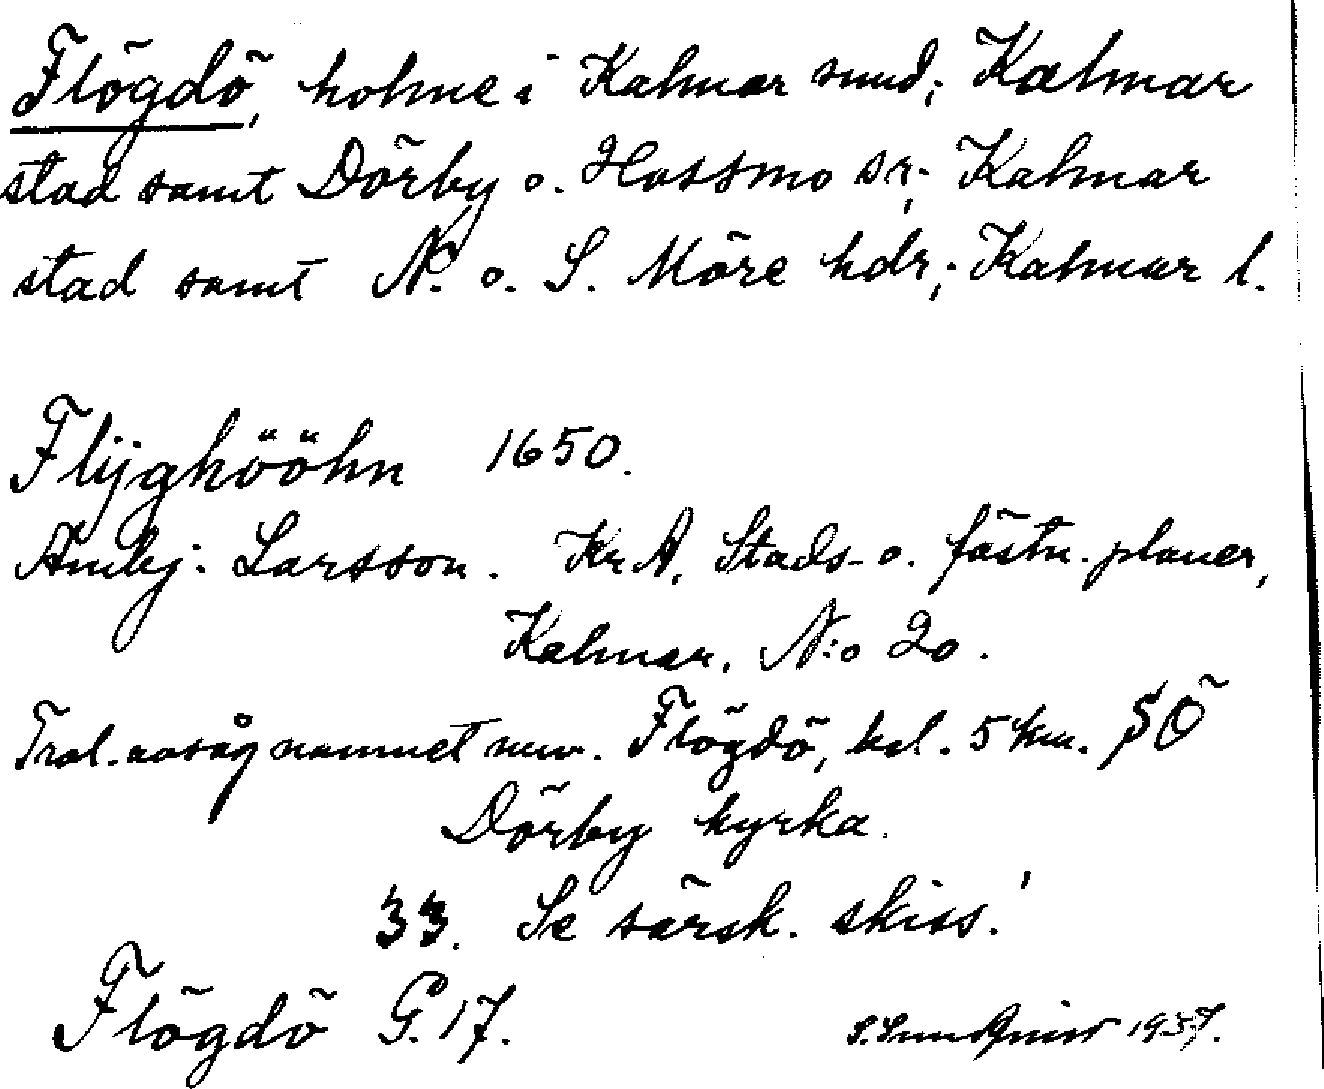 Flögdö, holme i Kalmar sund; Kalmar
stad samt Dörby o. Hossmo sr; Kalmar
stad samt N. o. S. Möre hdr; Kalmar l.
Flijghööhn 1650.
Ambj. Larsson. Kr A, Stads- o. fästn. planer,
Kalmar, N:o 20.
Trol. avsåg namnet nuv. Flögdö, bel. 5 km. SÖ
Dörby kyrka.
33. Se särsk. skiss!
Flögdö G. 17.
S. Sundqvist 1937.